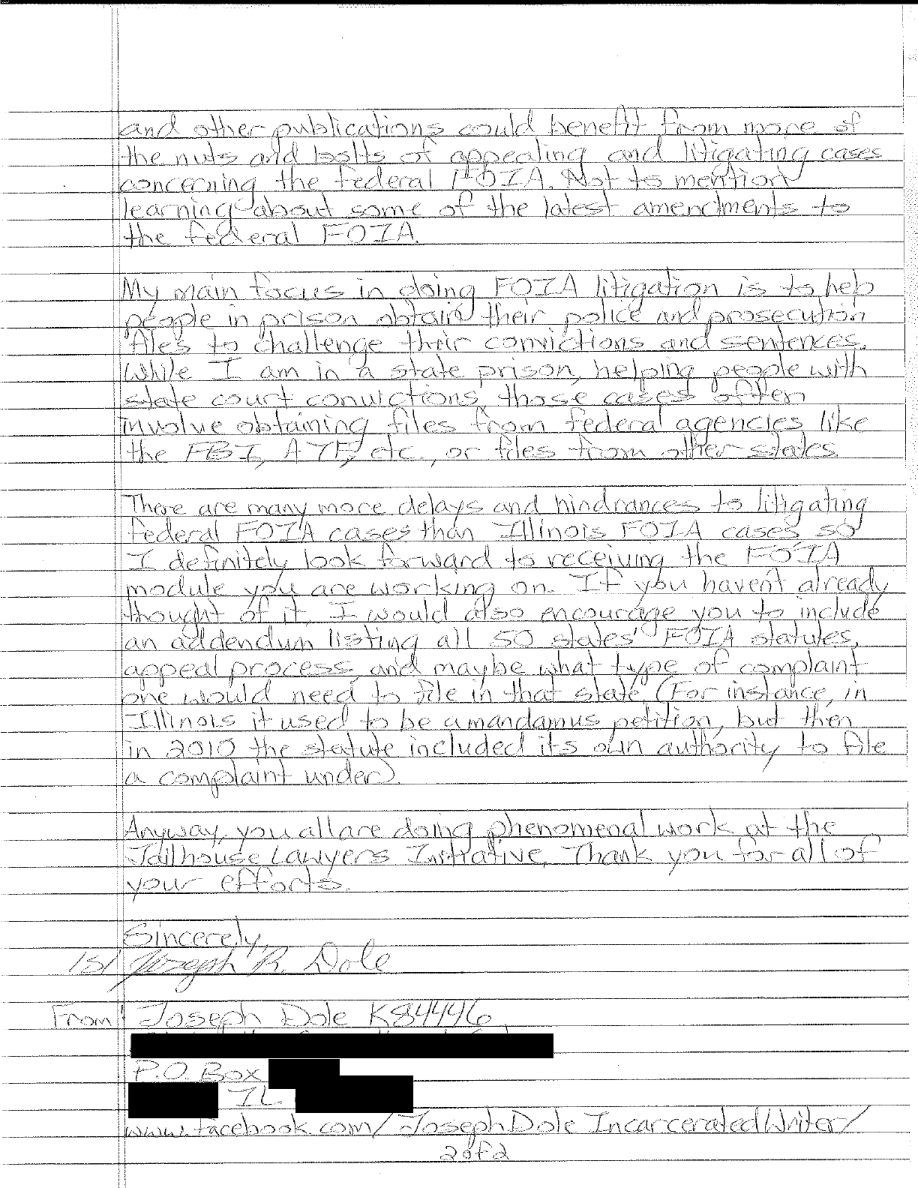 and other publications could benefit from more of
the nuts and bolts of appealing and litigating cases
concerning the federal FOIA. Not to mention
learning about some of the latest amendments to
the federal FOIA.
My main focus in doing FOIA litigation is to help
people in prison obtain their police and prosecution
files to challenge their convictions and sentences.
While I am in a state prison, helping people with
state court convictions, those cases often
involve obtaining files from federal agencies like
the FBI, ATF, etc., or files from other states.
There are many more delays and hindrances to litigating
federal FOIA cases than Illinois FOIA cases so
I definitely look forward to receiving the FOIA
module you are working on. If you haven't already
thought of it, I would also encourage you to include
an addendum listing all 50 states' FOIA statutes,
appeal process, and maybe what type of complaint
one would need to file in that state. (For instance, in
Illinois it used to be a mandamus petition, but then
in 2010 the statute included its own authority to file
a complaint under).
Anyway, you all are doing phenomenal work at the
Jailhouse Lawyers Initiative. Thank you for all of
your efforts.
Sincerely,
/s/ Joseph R. Dole
From: Joseph Dole K84446
P.O. Box
IL.
www.facebook.com/JosephDoleIncarceratedWriter/
2 of 2